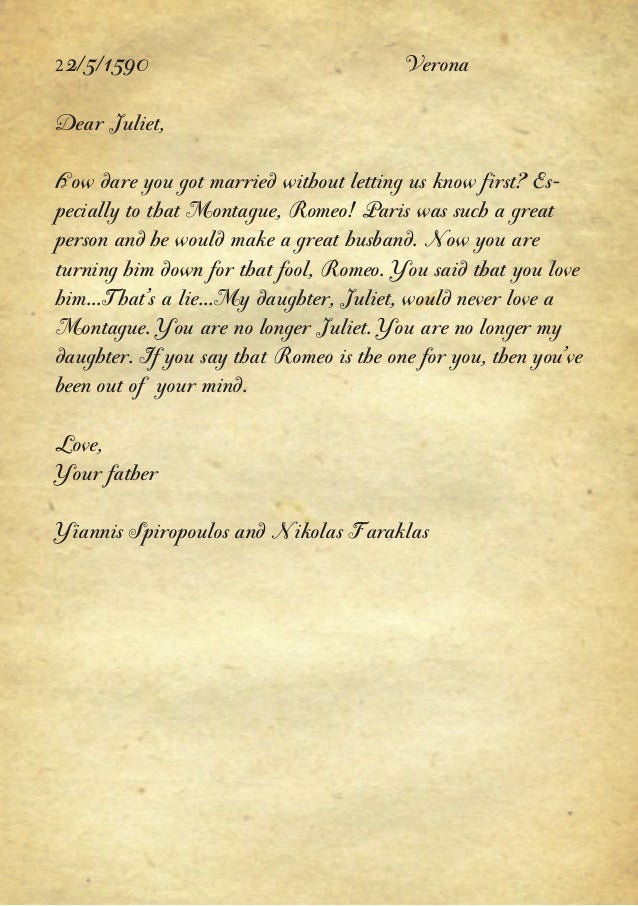 22/5/1590 Verona
Dear Juliet,
How dare you got married without letting us know first? Es-
pecially to that Montague, Romeo! Paris was such a great
person and he would make a great husband. Now you are
turning him down for that fool, Romeo. You said that you love
him...That's a lie...My daughter, Juliet, would never love a
Montague. You are no longer Juliet. You are no longer my
daughter. If you say that Romeo is the one for you, then you've
been out of your mind.
Love,
Your father
Yiannis Spiropoulos and Nikolas Faraklas